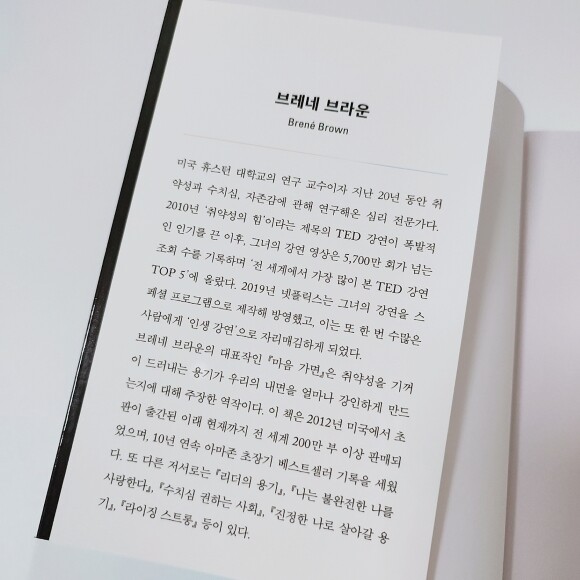 브레네 브라운
Brené Brown
미국 휴스턴 대학교의 연구 교수이자 지난 20년 동안 취
약성과 수치심, 자존감에 관해 연구해온 심리 전문가다.
2010년 ‘취약성의 힘’이라는 제목의 TED 강연이 폭발적
인 인기를 끈 이후, 그녀의 강연 영상은 5,700만 회가 넘는
조회 수를 기록하며 ‘전 세계에서 가장 많이 본 TED 강연
TOP 5’에 올랐다. 2019년 넷플릭스는 그녀의 강연을 스
페셜 프로그램으로 제작해 방영했고, 이는 또 한 번 수많은
사람에게 ‘인생 강연’으로 자리매김하게 되었다.
브레네 브라운의 대표작인 『마음 가면』은 취약성을 기꺼
이 드러내는 용기가 우리의 내면을 얼마나 강인하게 만드
는지에 대해 주장한 역작이다. 이 책은 2012년 미국에서 초
판이 출간된 이래 현재까지 전 세계 200만 부 이상 판매되
었으며, 10년 연속 아마존 초장기 베스트셀러 기록을 세웠
다. 또 다른 저서로는 『리더의 용기』, 『나는 불완전한 나를
사랑한다』, 『수치심 권하는 사회』, 『진정한 나로 살아갈 용
기』, 『라이징 스트롱』 등이 있다.